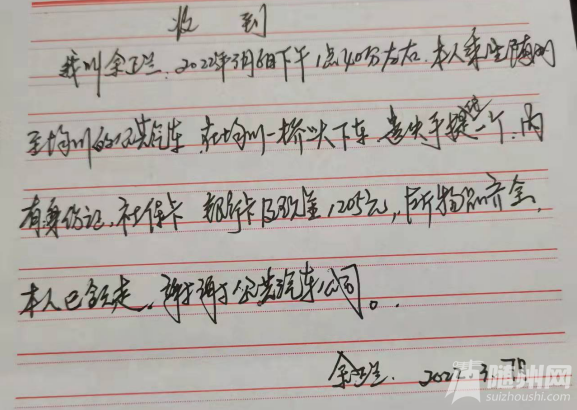 收 到
我叫余正兰,2022年3月6日下午1点40分左右,本人乘坐随州
至均川的公共汽车,在均川一桥头下车,遗失手提包一个,内
有身份证,社保卡 银行卡及现金1205元,所有物品齐全,
本人已领走,谢谢公共汽车公司。
余正兰. 2022.3.7日
随州网
suizhoushi.com